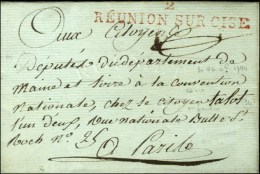 2
RÉUNION SUR OISE
Aux Citoyens
Députés du département de
Maine et Loire à la Convention
Nationale, chez le citoyen talot
l'un d'eux, Rue nationale Butte St.
Roch No. 25
à Paris